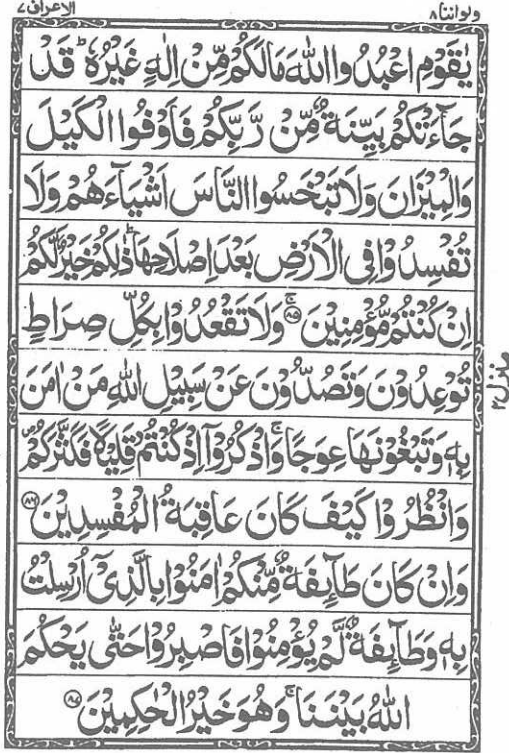 ولواننا ٨
الاعراف ٧
يٰقَوْمِ اعْبُدُوا اللّٰهَ مَا لَكُمْ مِّنْ اِلٰهٍ غَيْرُهٗ ؕ قَدْ
جَآءَتْكُمْ بَيِّنَةٌ مِّنْ رَّبِّكُمْ فَاَوْفُوا الْكَيْلَ
وَالْمِيْزَانَ وَلَا تَبْخَسُوا النَّاسَ اَشْيَآءَهُمْ وَلَا
تُفْسِدُوْا فِى الْاَرْضِ بَعْدَ اِصْلَاحِهَا ؕ ذٰلِكُمْ خَيْرٌ لَّكُمْ
اِنْ كُنْتُمْ مُّؤْمِنِيْنَ ۚ ٨٥ وَلَا تَقْعُدُوْا بِكُلِّ صِرَاطٍ
تُوْعِدُوْنَ وَتَصُدُّوْنَ عَنْ سَبِيْلِ اللّٰهِ مَنْ اٰمَنَ
بِهٖ وَتَبْغُوْنَهَا عِوَجًا ۚ وَاذْكُرُوْۤا اِذْ كُنْتُمْ قَلِيْلًا فَكَثَّرَكُمْ ۪
وَانْظُرُوْا كَيْفَ كَانَ عَاقِبَةُ الْمُفْسِدِيْنَ ٨٦
وَاِنْ كَانَ طَآئِفَةٌ مِّنْكُمْ اٰمَنُوْا بِالَّذِىْۤ اُرْسِلْتُ
بِهٖ وَطَآئِفَةٌ لَّمْ يُؤْمِنُوْا فَاصْبِرُوْا حَتّٰى يَحْكُمَ
اللّٰهُ بَيْنَنَا ۚ وَهُوَ خَيْرُ الْحٰكِمِيْنَ ٨٧
منزل ٢